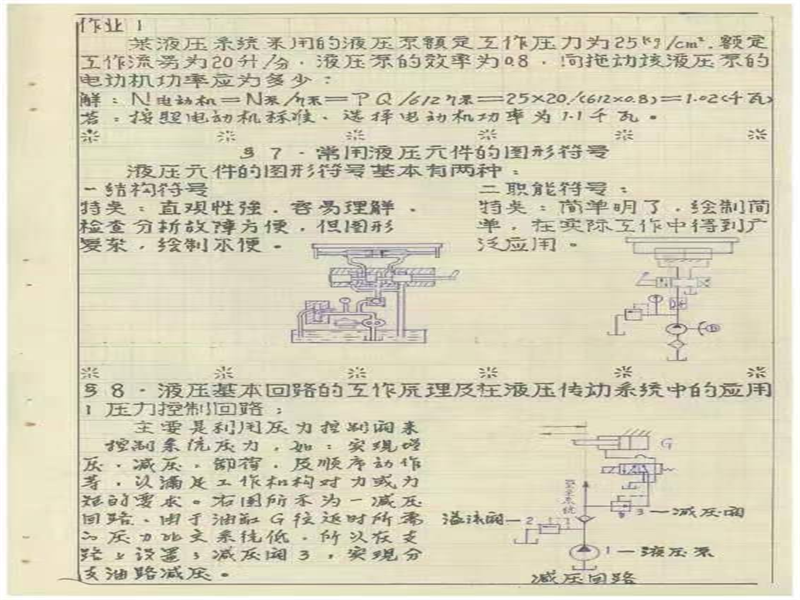 作业 1
某液压系统采用的液压泵额定工作压力为25kg/cm². 额定
工作流易为20升/分，液压泵的效率为0.8．问拖动该液压泵的
电动机功率应为多少：
解：N电动机＝N泵/η泵＝PQ/612η泵＝25×20/(612×0.8)＝1.02(千瓦)
答：按照电动机标准、选择电动机功率为1.1千瓦。
§7·常用液压元件的图形符号
液压元件的图形符号基本有两种：
一结构符号
特点：直观性强．容易理解．
检查分析故障方便，但图形
复杂，绘制不便。
二职能符号：
特点：简单明了，绘制简
单，在实际工作中得到广
泛应用。
§8·液压基本回路的工作原理及在液压传动系统中的应用
1 压力控制回路：
主要是利用压力控制阀来
控制系统压力，如：实现增
压．减压．卸荷．及顺序动作
等，以满足工作机构对力或力
矩的要求。右图所示为一减压
回路．由于油缸G往返时所需
的压力比主系统低．所以在支
路上设置3减压阀3，实现分
支油路减压。
G
至主系统
溢流阀—2
3—减压阀
1—液压泵
减压回路